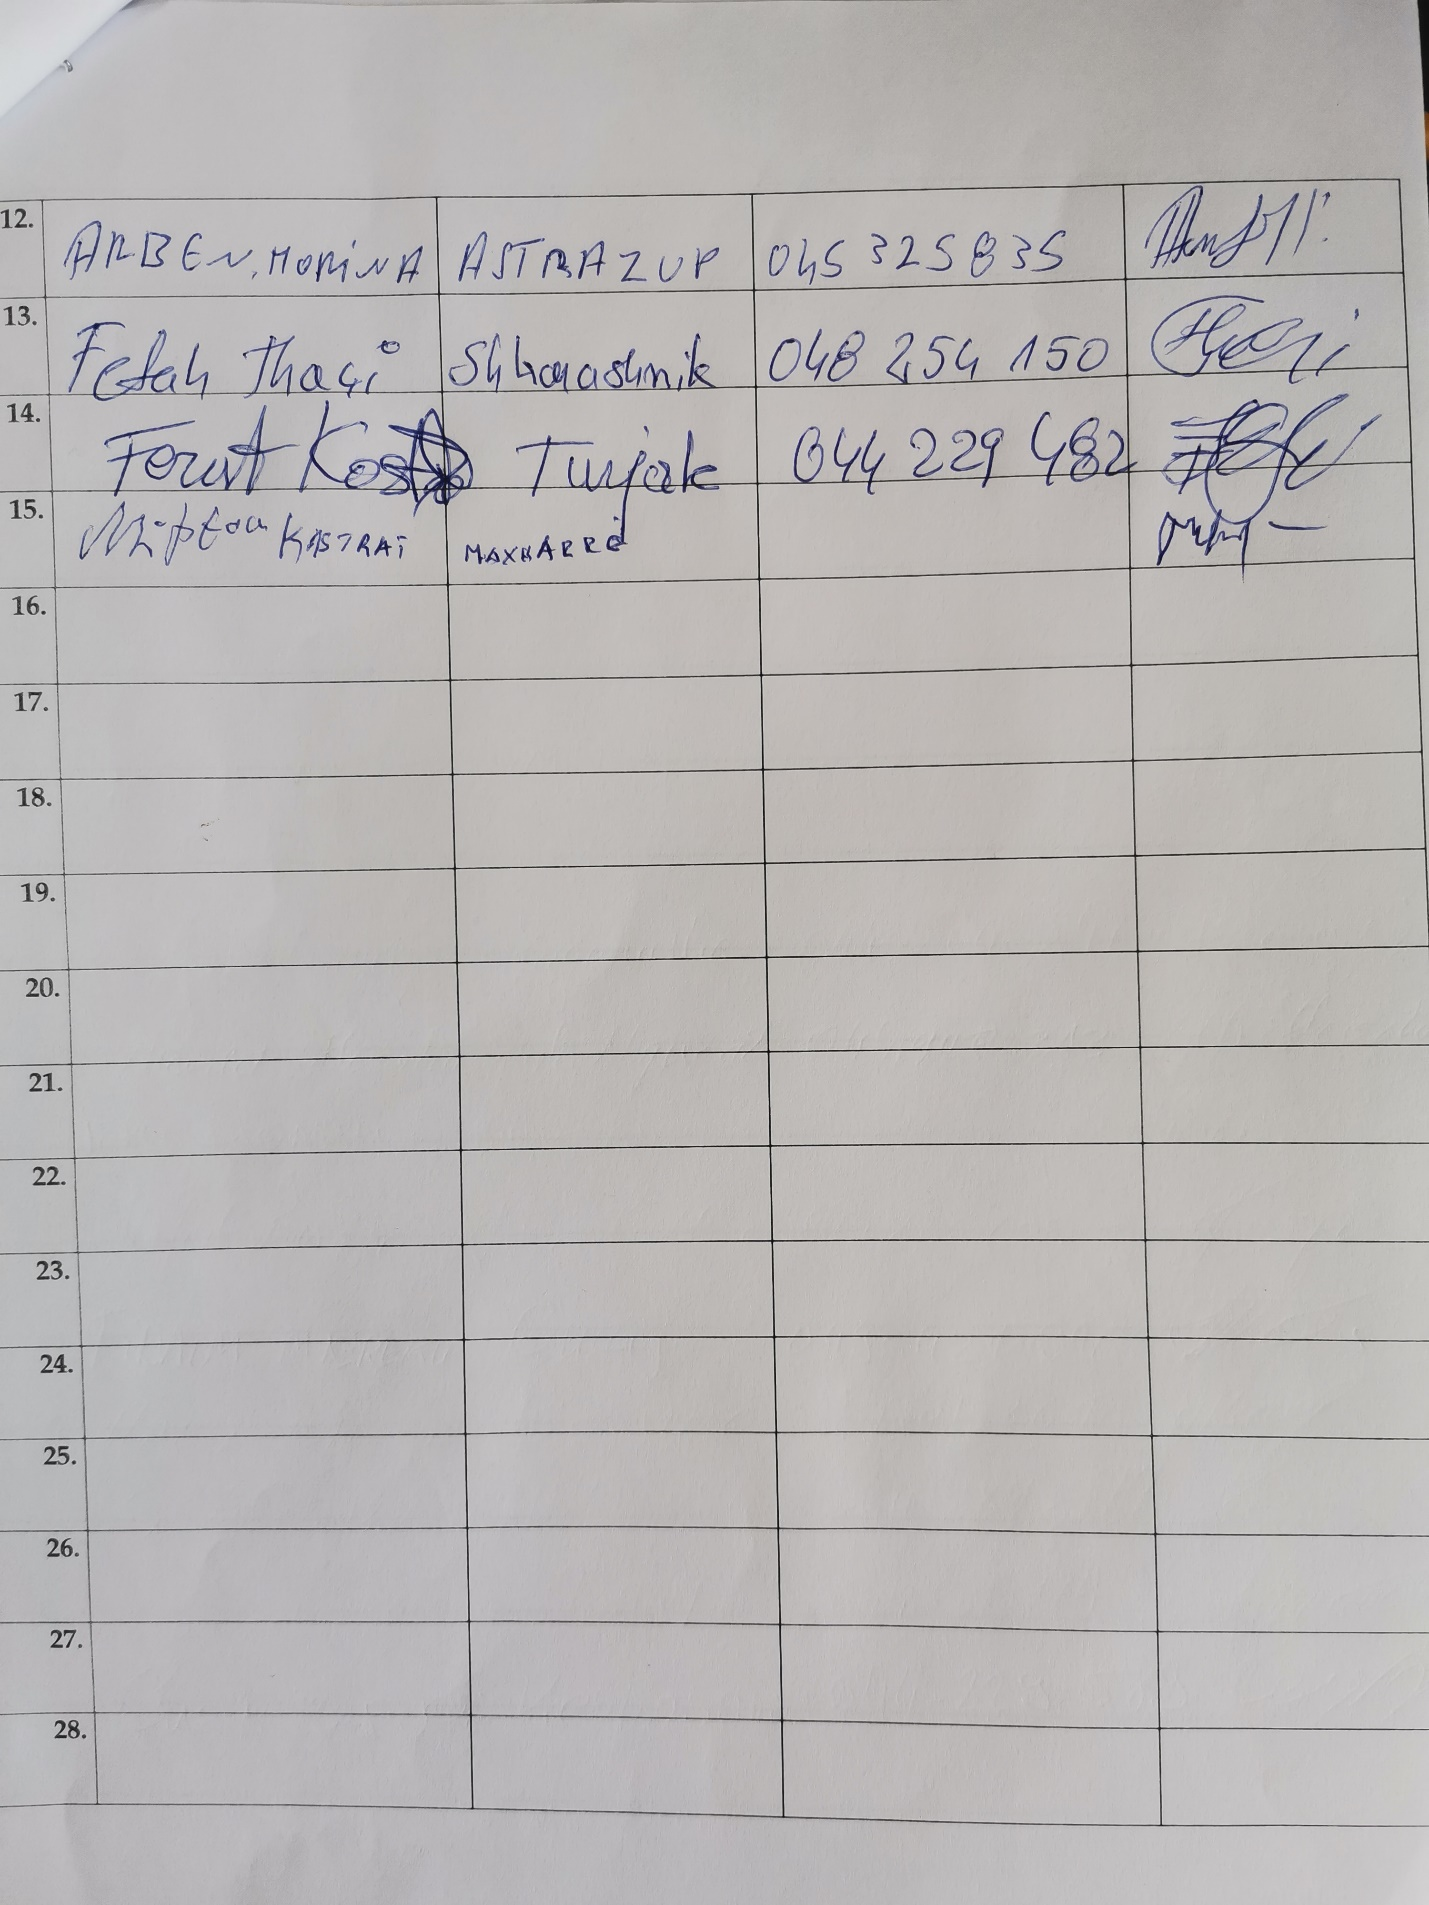 12. ARBEN. MORINA ASTRAZUP 045 325 835
13. Fetah Thaçi Shkarashnik 048 254 150
14. Ferat Turjak 044 229 482
15. KASTRAT MAXHARRË
16.
17.
18.
19.
20.
21.
22.
23.
24.
25.
26.
27.
28.